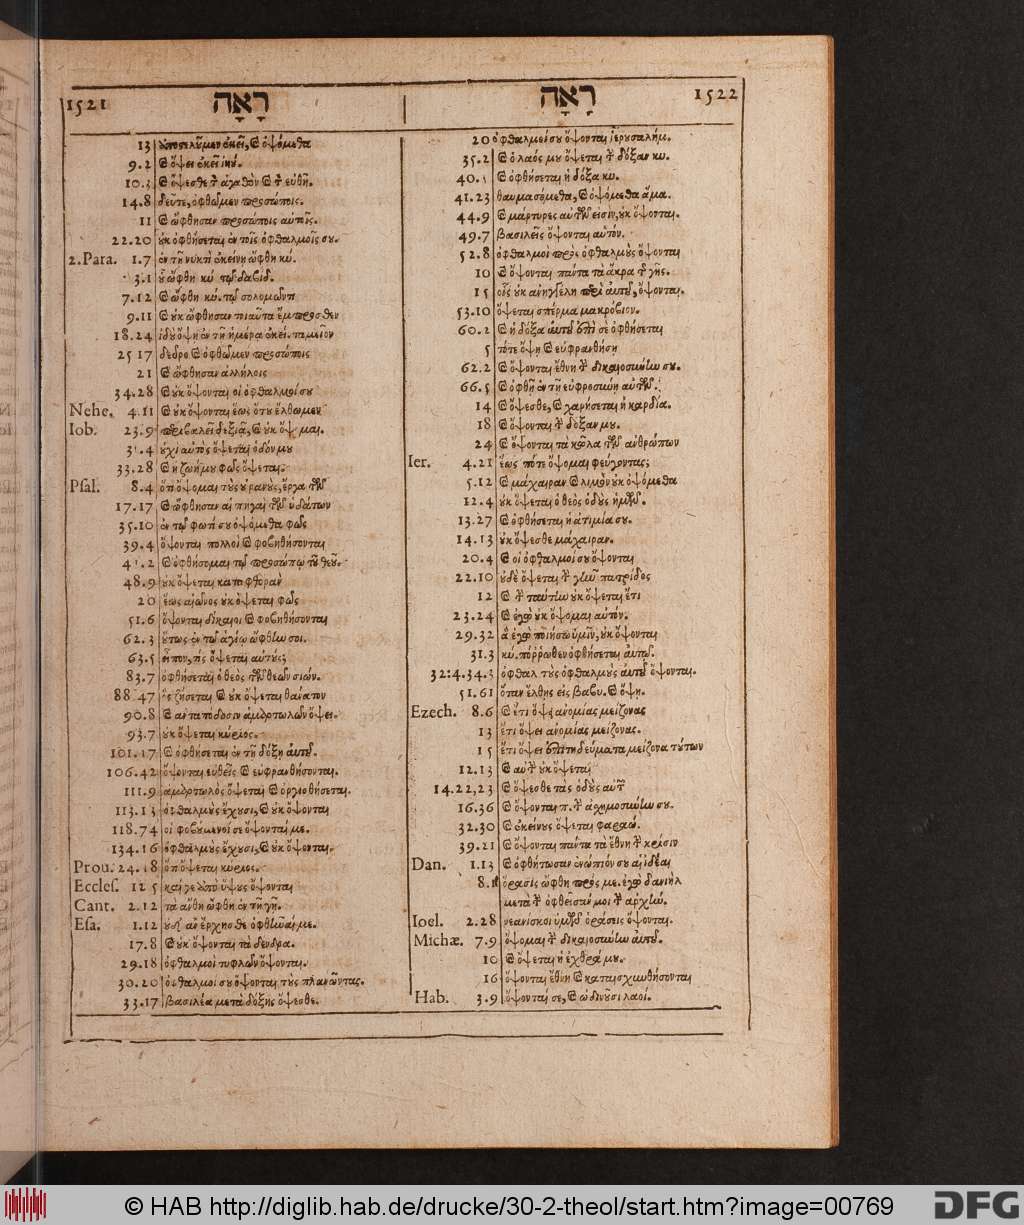 1521 רָאָה
13 ὑποσελῦμεν ἐκεῖ, καὶ ὀψόμεθα
9.2 καὶ ὄψει ἐκεῖ ἰηύ.
10.3 καὶ ὄψεσθε τὸν ἀγαθὸν καὶ τὸν εὐθῆ.
14.8 δεῦτε, ὀφθῶμεν προσώποις.
11 καὶ ὤφθησαν προσώποις αὐτοῖς.
22.20 οὐκ ὀφθήσεται ἐν τοῖς ὀφθαλμοῖς σου.
2.Para. 1.7 ἐν τῇ νυκτὶ ἐκείνῃ ὤφθη κύ.
3.1 οὗ ὤφθη κύ τῷ δαβίδ.
7.12 καὶ ὤφθη κύ. τῷ σολομῶντι
9.11 καὶ οὐκ ὤφθησαν τοιαῦτα ἔμπροσθεν
18.24 ἰδοὺ ὄψῃ ἐν τῇ ἡμέρᾳ ἐκεί. ταμεῖον
25 17 δεῦρο καὶ ὀφθῶμεν προσώποις
21 καὶ ὤφθησαν ἀλλήλοις
34.28 καὶ οὐκ ὄψονται οἱ ὀφθαλμοί σου
Nehe. 4.11 καὶ οὐκ ὄψονται ἕως ὅτου ἔλθωμεν
Iob. 23.9 περιβαλεῖ δεξιᾷ, καὶ οὐκ ὄψομαι.
34.4 οὐχὶ αὐτὸς ὄψεται ὁδόν μου
33.28 καὶ ἡ ζωή μου φῶς ὄψεται.
Psal. 8.4 ὅτι ὄψομαι τοὺς οὐρανούς, ἔργα τῶν
17.17 καὶ ὤφθησαν αἱ πηγαὶ τῶν ὑδάτων
35.10 ἐν τῷ φωτί σου ὀψόμεθα φῶς
39.4 ὄψονται πολλοὶ καὶ φοβηθήσονται
41.2 καὶ ὀφθήσομαι τῷ προσώπῳ τοῦ θεοῦ.
48.9 οὐκ ὄψεται καταφθοράν
20 ἕως αἰῶνος οὐκ ὄψεται φῶς
51.6 ὄψονται δίκαιοι καὶ φοβηθήσονται
62.3 οὕτως ἐν τῷ ἁγίῳ ὤφθην σοι.
63.5 εἶπον, τίς ὄψεται αὐτούς;
83.7 ὀφθήσεται ὁ θεὸς τῶν θεῶν σιών.
88 47 ὃς ζήσεται καὶ οὐκ ὄψεται θάνατον
90.8 καὶ ἀνταπόδοσιν ἁμαρτωλῶν ὄψει.
93.7 οὐκ ὄψεται κύριος.
101.17 καὶ ὀφθήσεται ἐν τῇ δόξῃ αὑτοῦ.
106.42 ὄψονται εὐθεῖς καὶ εὐφρανθήσονται.
111.9 ἁμαρτωλὸς ὄψεται καὶ ὀργισθήσεται.
113.13 ὀφθαλμοὺς ἔχουσι, καὶ οὐκ ὄψονται
118.74 οἱ φοβούμενοί σε ὄψονταί με.
134.16 ὀφθαλμοὺς ἔχουσι, καὶ οὐκ ὄψονται.
Prou. 24.18 ὅτι ὄψεται κύριος.
Eccles. 12 5 καί γε ἀπὸ ὕψους ὄψονται
Cant. 2.12 τὰ ἄνθη ὤφθη ἐν τῇ γῇ.
Esa. 1.12 οὐδ' ἂν ἔρχησθε ὀφθῆναί με.
17.8 καὶ οὐκ ὄψονται τὰ δένδρα.
29.18 ὀφθαλμοὶ τυφλῶν ὄψονται.
30.20 ὀφθαλμοί σου ὄψονται τοὺς πλανῶντας.
33.17 βασιλέα μετὰ δόξης ὄψεσθε.
רָאָה 1522
20 ὀφθαλμοί σου ὄψονται ἱερουσαλήμ.
35.2 καὶ ὁ λαός μου ὄψεται τὴν δόξαν κυ.
40.5 καὶ ὀφθήσεται ἡ δόξα κυ.
41.23 θαυμασόμεθα, καὶ ὀψόμεθα ἅμα.
44.9 καὶ μάρτυρες αὐτῶν εἰσιν, οὐκ ὄψονται.
49.7 βασιλεῖς ὄψονται αὐτόν.
52.8 ὀφθαλμοὶ πρὸς ὀφθαλμοὺς ὄψονται
10 καὶ ὄψονται πάντα τὰ ἄκρα τῆς γῆς.
15 οἷς οὐκ ἀνηγγέλη περὶ αὐτοῦ, ὄψονται.
53.10 ὄψεται σπέρμα μακρόβιον.
60.2 καὶ ἡ δόξα αὐτοῦ ἐπὶ σὲ ὀφθήσεται
5 τότε ὄψῃ καὶ εὐφρανθήσῃ
62.2 καὶ ὄψονται ἔθνη τὴν δικαιοσύνην σου.
66.5 καὶ ὀφθῇ ἐν τῇ εὐφροσύνῃ αὐτῶν.
14 καὶ ὄψεσθε, καὶ χαρήσεται ἡ καρδία.
18 καὶ ὄψονται τὴν δόξαν μου.
24 καὶ ὄψονται τὰ κῶλα τῶν ἀνθρώπων
Ier. 4.21 ἕως πότε ὄψομαι φεύγοντας;
5.12 καὶ μάχαιραν καὶ λιμὸν οὐκ ὀψόμεθα
12.4 οὐκ ὄψεται ὁ θεὸς ὁδοὺς ἡμῶν.
13.27 καὶ ὀφθήσεται ἡ ἀτιμία σου.
14.13 οὐκ ὄψεσθε μάχαιραν.
20.4 καὶ οἱ ὀφθαλμοί σου ὄψονται
22.10 οὐδὲ ὄψεται τὴν γῆν πατρίδος
12 καὶ τὴν ταύτην οὐκ ὄψεται ἔτι
23.24 καὶ ἐγὼ οὐκ ὄψομαι αὐτόν.
29.32 ἃ ἐγὼ ποιήσω ὑμῖν, οὐκ ὄψονται
31.3 κύ. πόῤῥωθεν ὀφθήσεται αὐτῷ.
32.4.34.3 ὀφθαλ τοὺς ὀφθαλμοὺς αὐτοῦ ὄψονται.
51.61 ὅταν ἔλθῃς εἰς βαβυ. καὶ ὄψῃ.
Ezech. 8.6 καὶ ἔτι ὄψῃ ἀνομίας μείζονας
13 ἔτι ὄψει ἀνομίας μείζονας.
15 ἔτι ὄψει ἐπιτηδεύματα μείζονα τούτων
12.13 καὶ αὐτὴν οὐκ ὄψεται
14.22,23 καὶ ὄψεσθε τὰς ὁδοὺς αὐτῶν
16.36 καὶ ὄψονται π. τὴν ἀσχημοσύνην σου.
32.30 καὶ ἐκείνους ὄψεται φαραώ.
39.21 καὶ ὄψονται πάντα τὰ ἔθνη τὴν κρίσιν
Dan. 1.13 καὶ ὀφθήτωσαν ἐνώπιόν σου αἱ ἰδέαι
8.1 ὅρασις ὤφθη πρός με. ἐγὼ δανιήλ
μετὰ τὴν ὀφθεῖσάν μοι τὴν ἀρχήν.
Ioel. 2.28 νεανίσκοι ὑμῶν ὁράσεις ὄψονται.
Michæ. 7.9 ὄψομαι τὴν δικαιοσύνην αὐτοῦ.
10 καὶ ὄψεται ἡ ἐχθρά μου.
16 ὄψονται ἔθνη καὶ καταισχυνθήσονται
Hab. 3.9 ὄψονταί σε, καὶ ὠδινοῦσι λαοί.
© HAB http://diglib.hab.de/drucke/30-2-theol/start.htm?image=00769
DFG